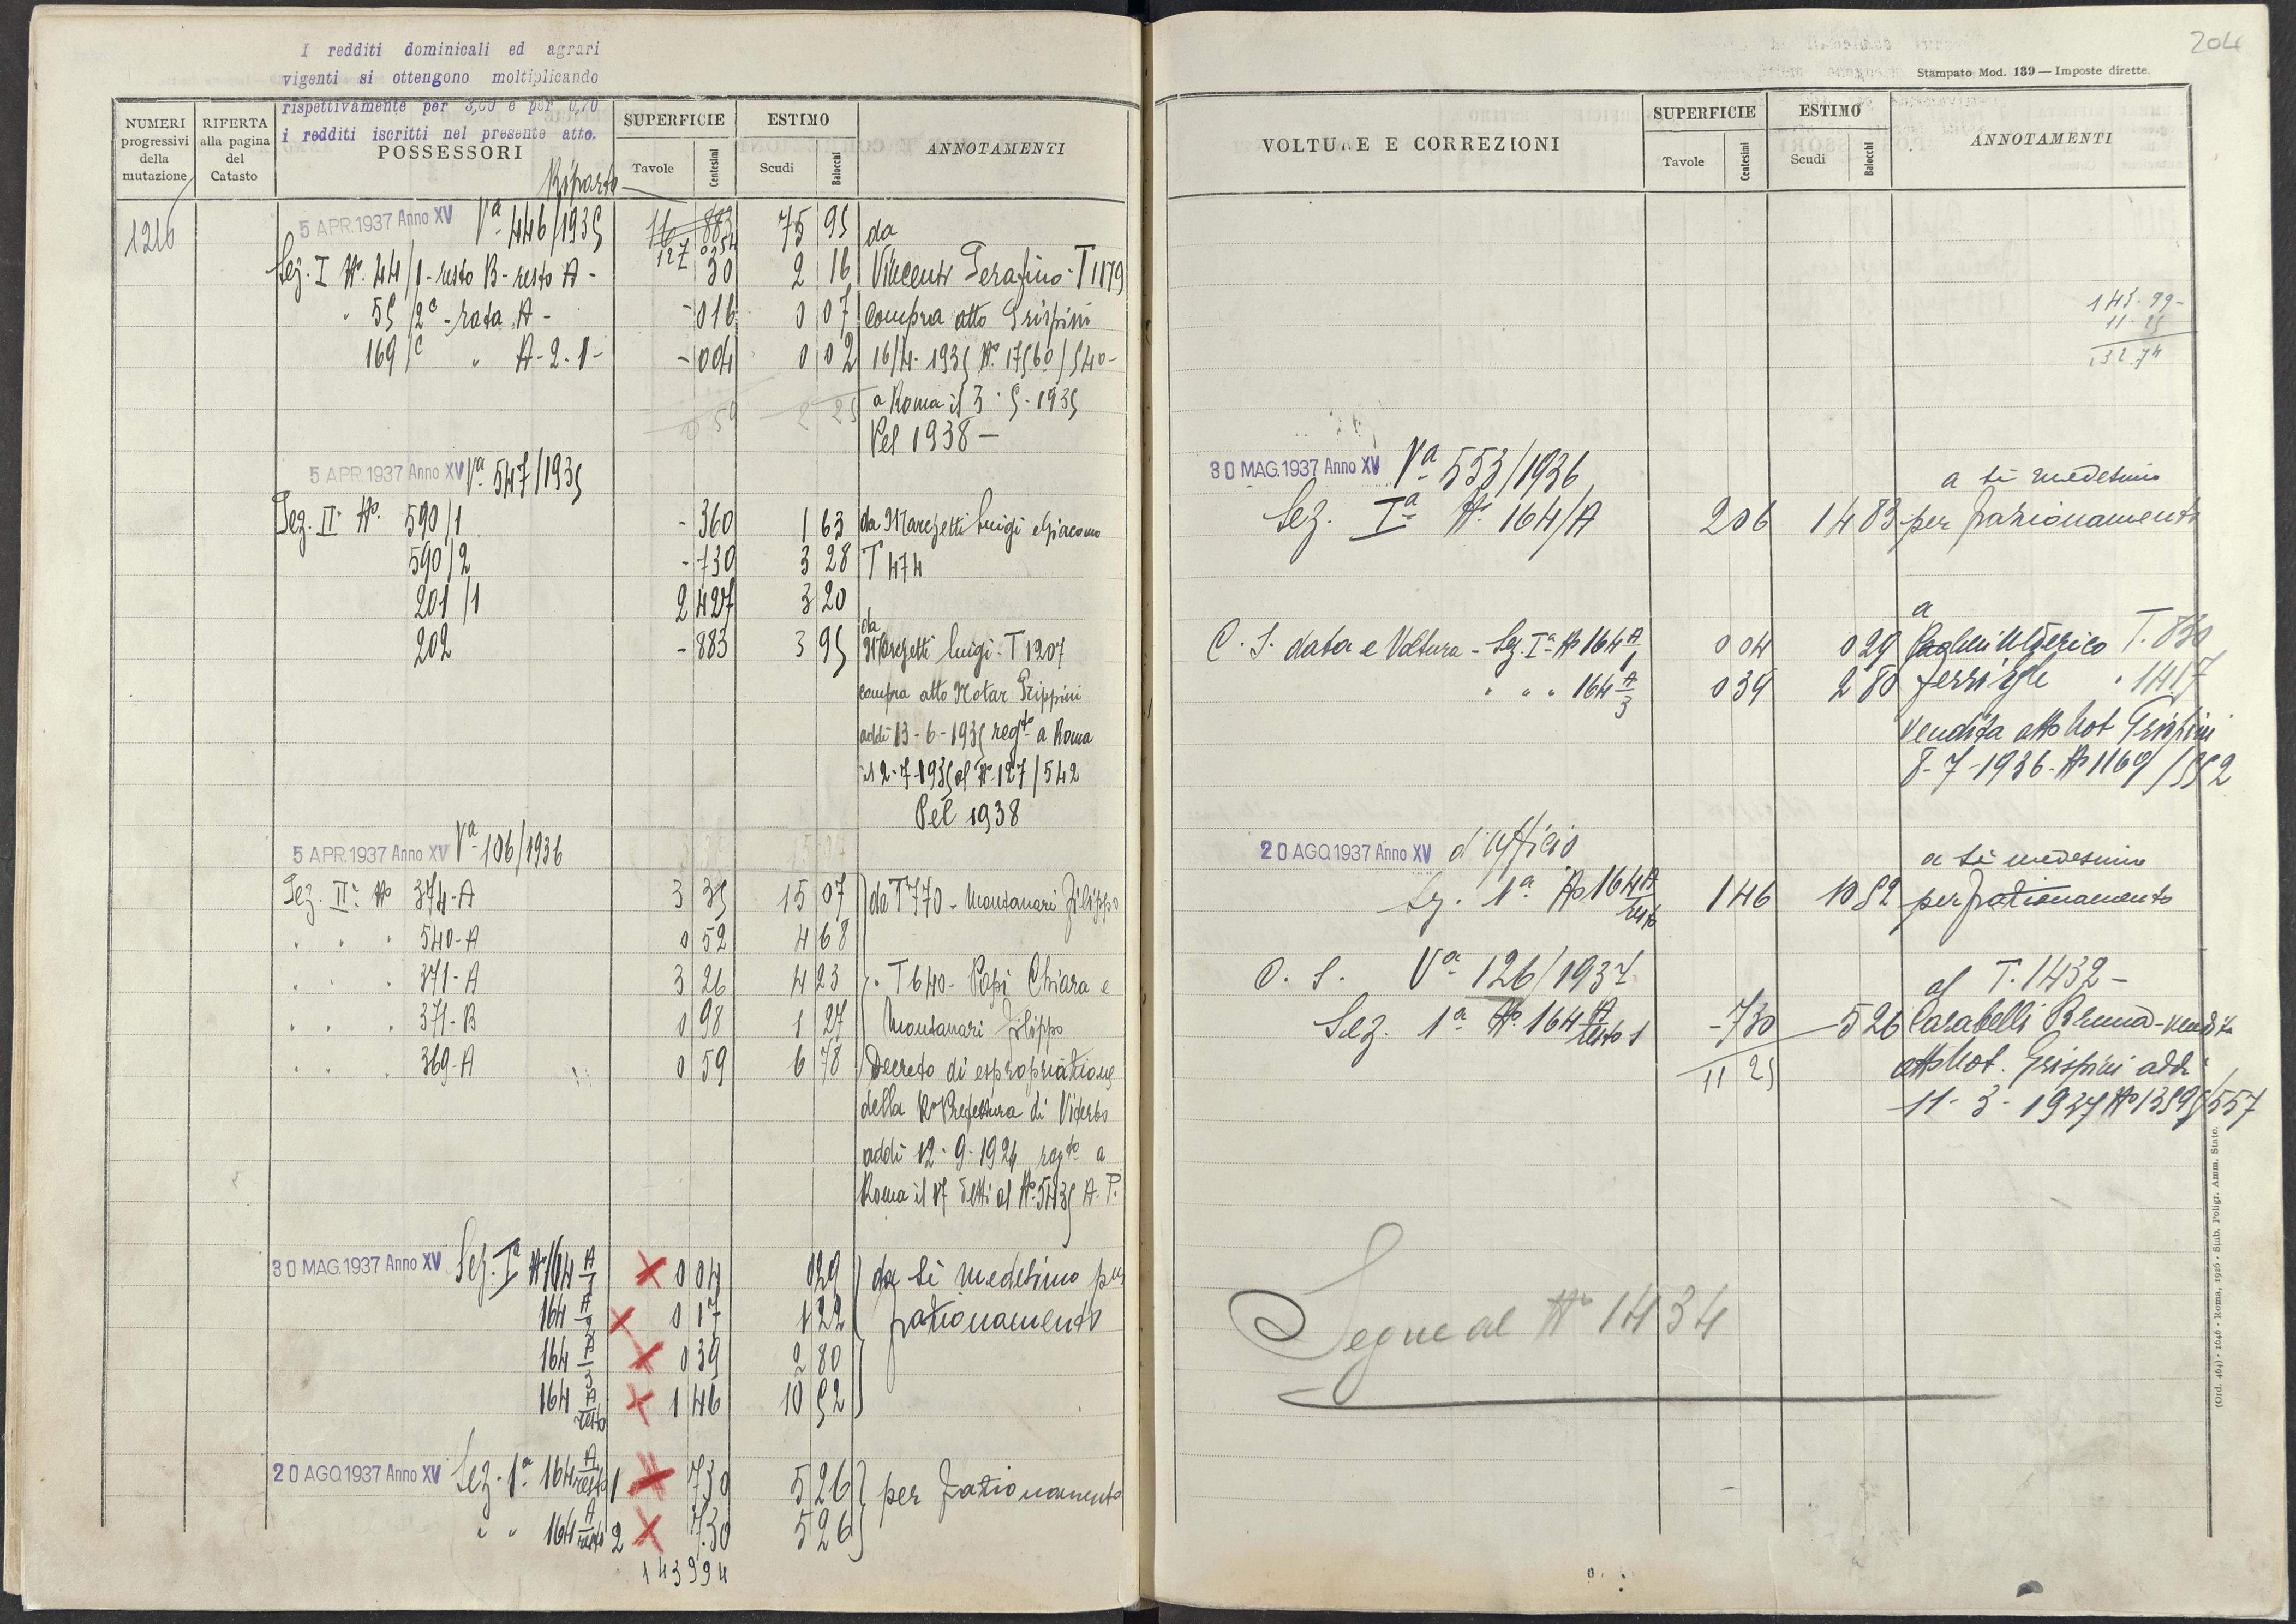 I redditi dominicali ed agrari
vigenti si ottengono moltiplicando
rispettivamente per 3,00 e per 0,70
i redditi iscritti nel presente atto.
NUMERI progressivi della mutazione
RIFERTA alla pagina del Catasto
POSSESSORI
SUPERFICIE
Tavole
Centesimi
ESTIMO
Scudi
Baiocchi
ANNOTAMENTI
Riporto
1216
5 APR.1937 Anno XV Vª 446/1935 16 883 75 95 da
127 0354
Sez. I Nº 44/1-resto B-resto A- 30 2 16 Vincenti Serafino-T 1179
" 55/2c-rata A- -016 0 07 Compra atto Grispini
169/c " A-2-1- -004 0 02 16/4-1935 Nº 17560/540-
0 59 2 25 a Roma il 3-5-1935
Pel 1938-
5 APR.1937 Anno XV Vª 547/1935
Sez. II Nº 590/1 -360 1 63 da Marzetti Luigi e Giacomo
590/2 -730 3 28 T 474
201/1 2 427 3 20
202 -883 3 95 da Marzetti Luigi-T 1207
compra atto Notar Grispini
addì 13-6-1935 regto a Roma
il 2-7-1935 al Nº 127/542
Pel 1938
5 APR.1937 Anno XV Vª 106/1936
Sez. II Nº 374-A 3 35 15 07 da T 770-Montanari Filippo
" " " 540-A 0 52 4 68
" " " 371-A 3 26 4 23 " T 640-Papi Chiara e
" " " 371-B 0 98 1 27 Montanari Filippo
" " " 369-A 0 59 6 78 Decreto di espropriazione
della Rª Prefettura di Viterbo
addì 12-9-1924 regto a
Roma il 17 detti al Nº 5435 A.P.
30 MAG.1937 Anno XV Sez. Iª Nº 164 A/1 0 04 0 29 da sè medesimo per
164 A/2 0 17 1 22 frazionamento
164 A/3 0 39 2 80
164 A/resto 1 46 10 52
20 AGO.1937 Anno XV Sez. 1ª 164 A/resto 1 730 5 26 per frazionamento
" " 164 A/resto 2 7.30 5 26
143994
204
Stampato Mod. 139 — Imposte dirette.
VOLTURE E CORREZIONI
SUPERFICIE
Tavole
Centesimi
ESTIMO
Scudi
Baiocchi
ANNOTAMENTI
143.99-
11-25
132.74
30 MAG.1937 Anno XV Vª 553/1936 a sè medesimo
Sez. Iª Nº 164/A 2 06 14 83 per frazionamento
a
C. S. data e Voltura-Sez. Iª Nº 164 A/1 0 04 0 29 Ulderico T. 830
" " " 164 A/3 0 39 2 80 Ferri " 1417
vendita atto Not Grispini
8-7-1936-Nº 1169/552
20 AGO.1937 Anno XV d'ufficio a sè medesimo
Sez. 1ª Nº 164 A/resto 1 46 10 52 per frazionamento
C. S. Vª 126/1937 al T. 1432-
Sez. 1ª Nº 164 A/resto 1 -730 -5 26 Carabelli Bruna-vendita
11 25 atto Not. Grispini addì
11-3-1937 Nº 13595/557
Segue al Nº 1434
(Ord. 464) - 1646 - Roma, 1926 - Stab. Poligr. Amm. Stato.